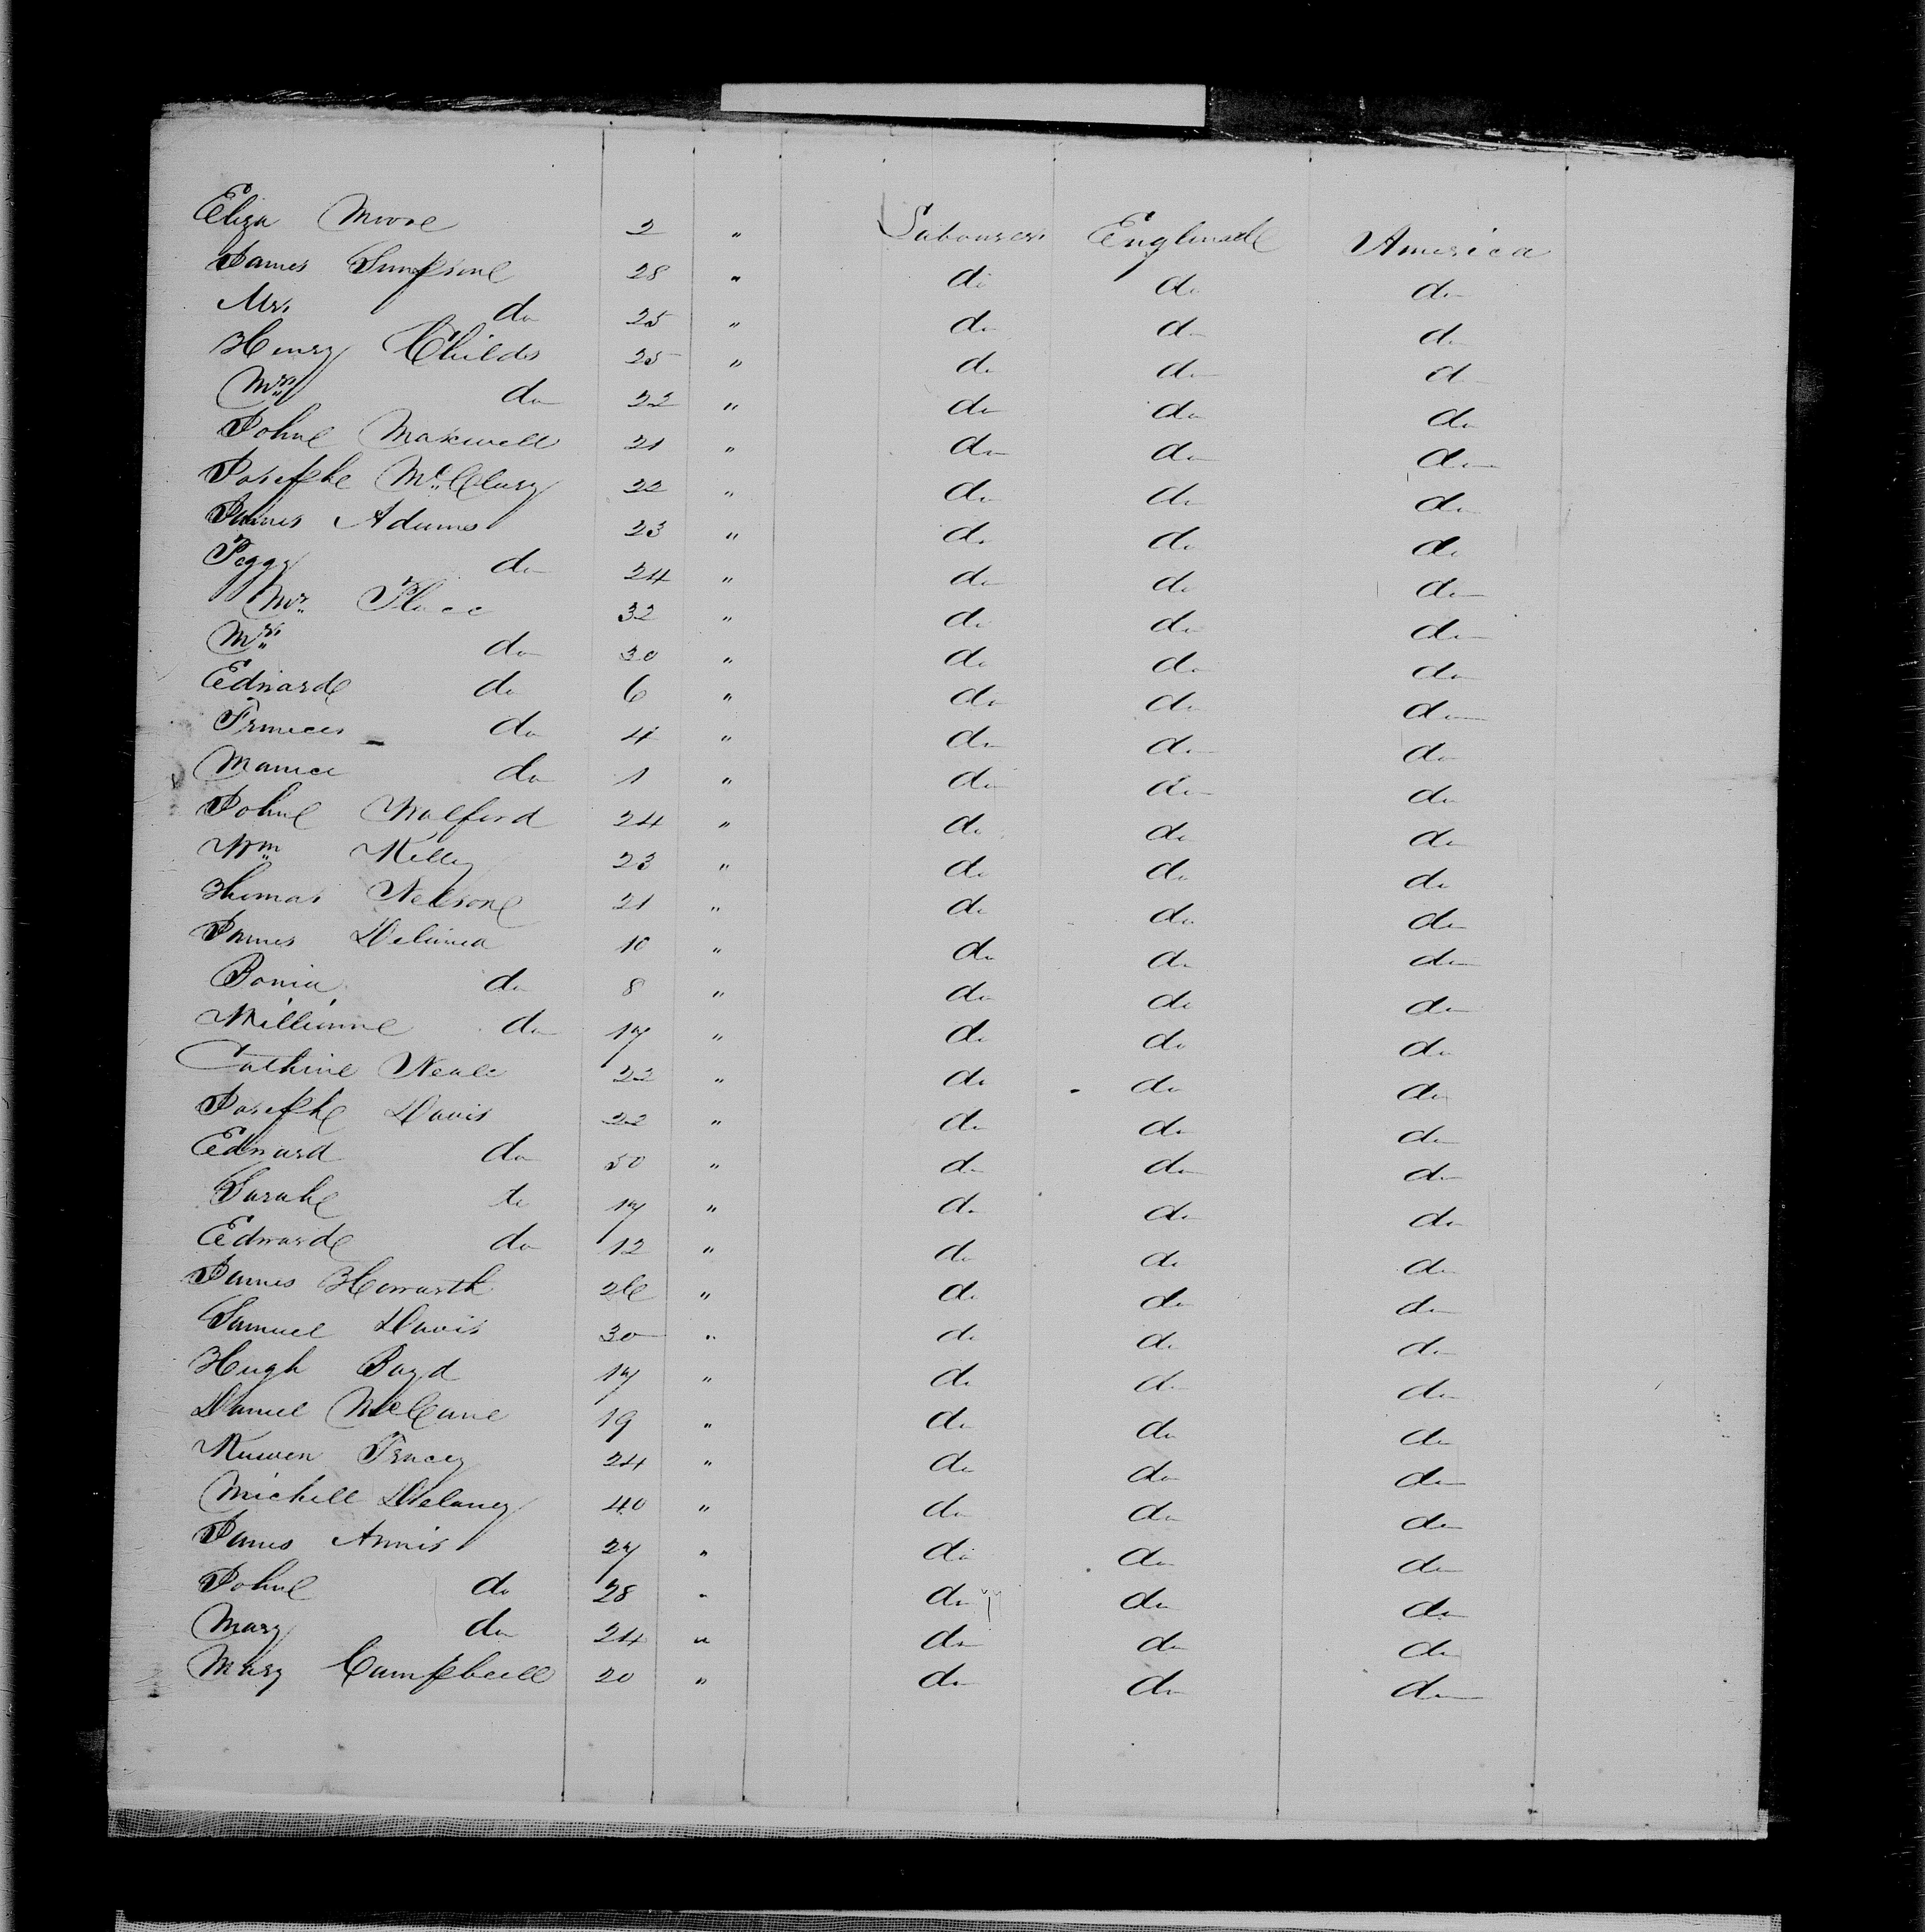 Eliza Moore 2 " Labourers England America
James Simpson 28 " do do do
Mrs do 25 " do do do
Henry Childs 25 " do do do
Mrs do 22 " do do do
John Maxwell 21 " do do do
Joseph McClury 22 " do do do
James Adams 23 " do do do
Peggy do 24 " do do do
Mr Place 32 " do do do
Mrs do 30 " do do do
Edward do 6 " do do do
Frances do 4 " do do do
do 1 " do do do
John Walford 24 " do do do
Wm Kelly 23 " do do do
Thomas Nelson 21 " do do do
James 10 " do do do
do 8 " do do do
do 17 " do do do
Cathine Neale 22 " do do do
Joseph Davis 22 " do do do
Edward do 50 " do do do
Sarah do 17 " do do do
Edward do 12 " do do do
James Howarth 26 " do do do
Samuel Davis 30 " do do do
Hugh Boyd 17 " do do do
Daniel McCane 19 " do do do
Tracey 24 " do do do
Michell Delaney 40 " do do do
James Annis 27 " do do do
John do 28 " do do do
Mary do 24 " do do do
Mary Campbell 20 " do do do